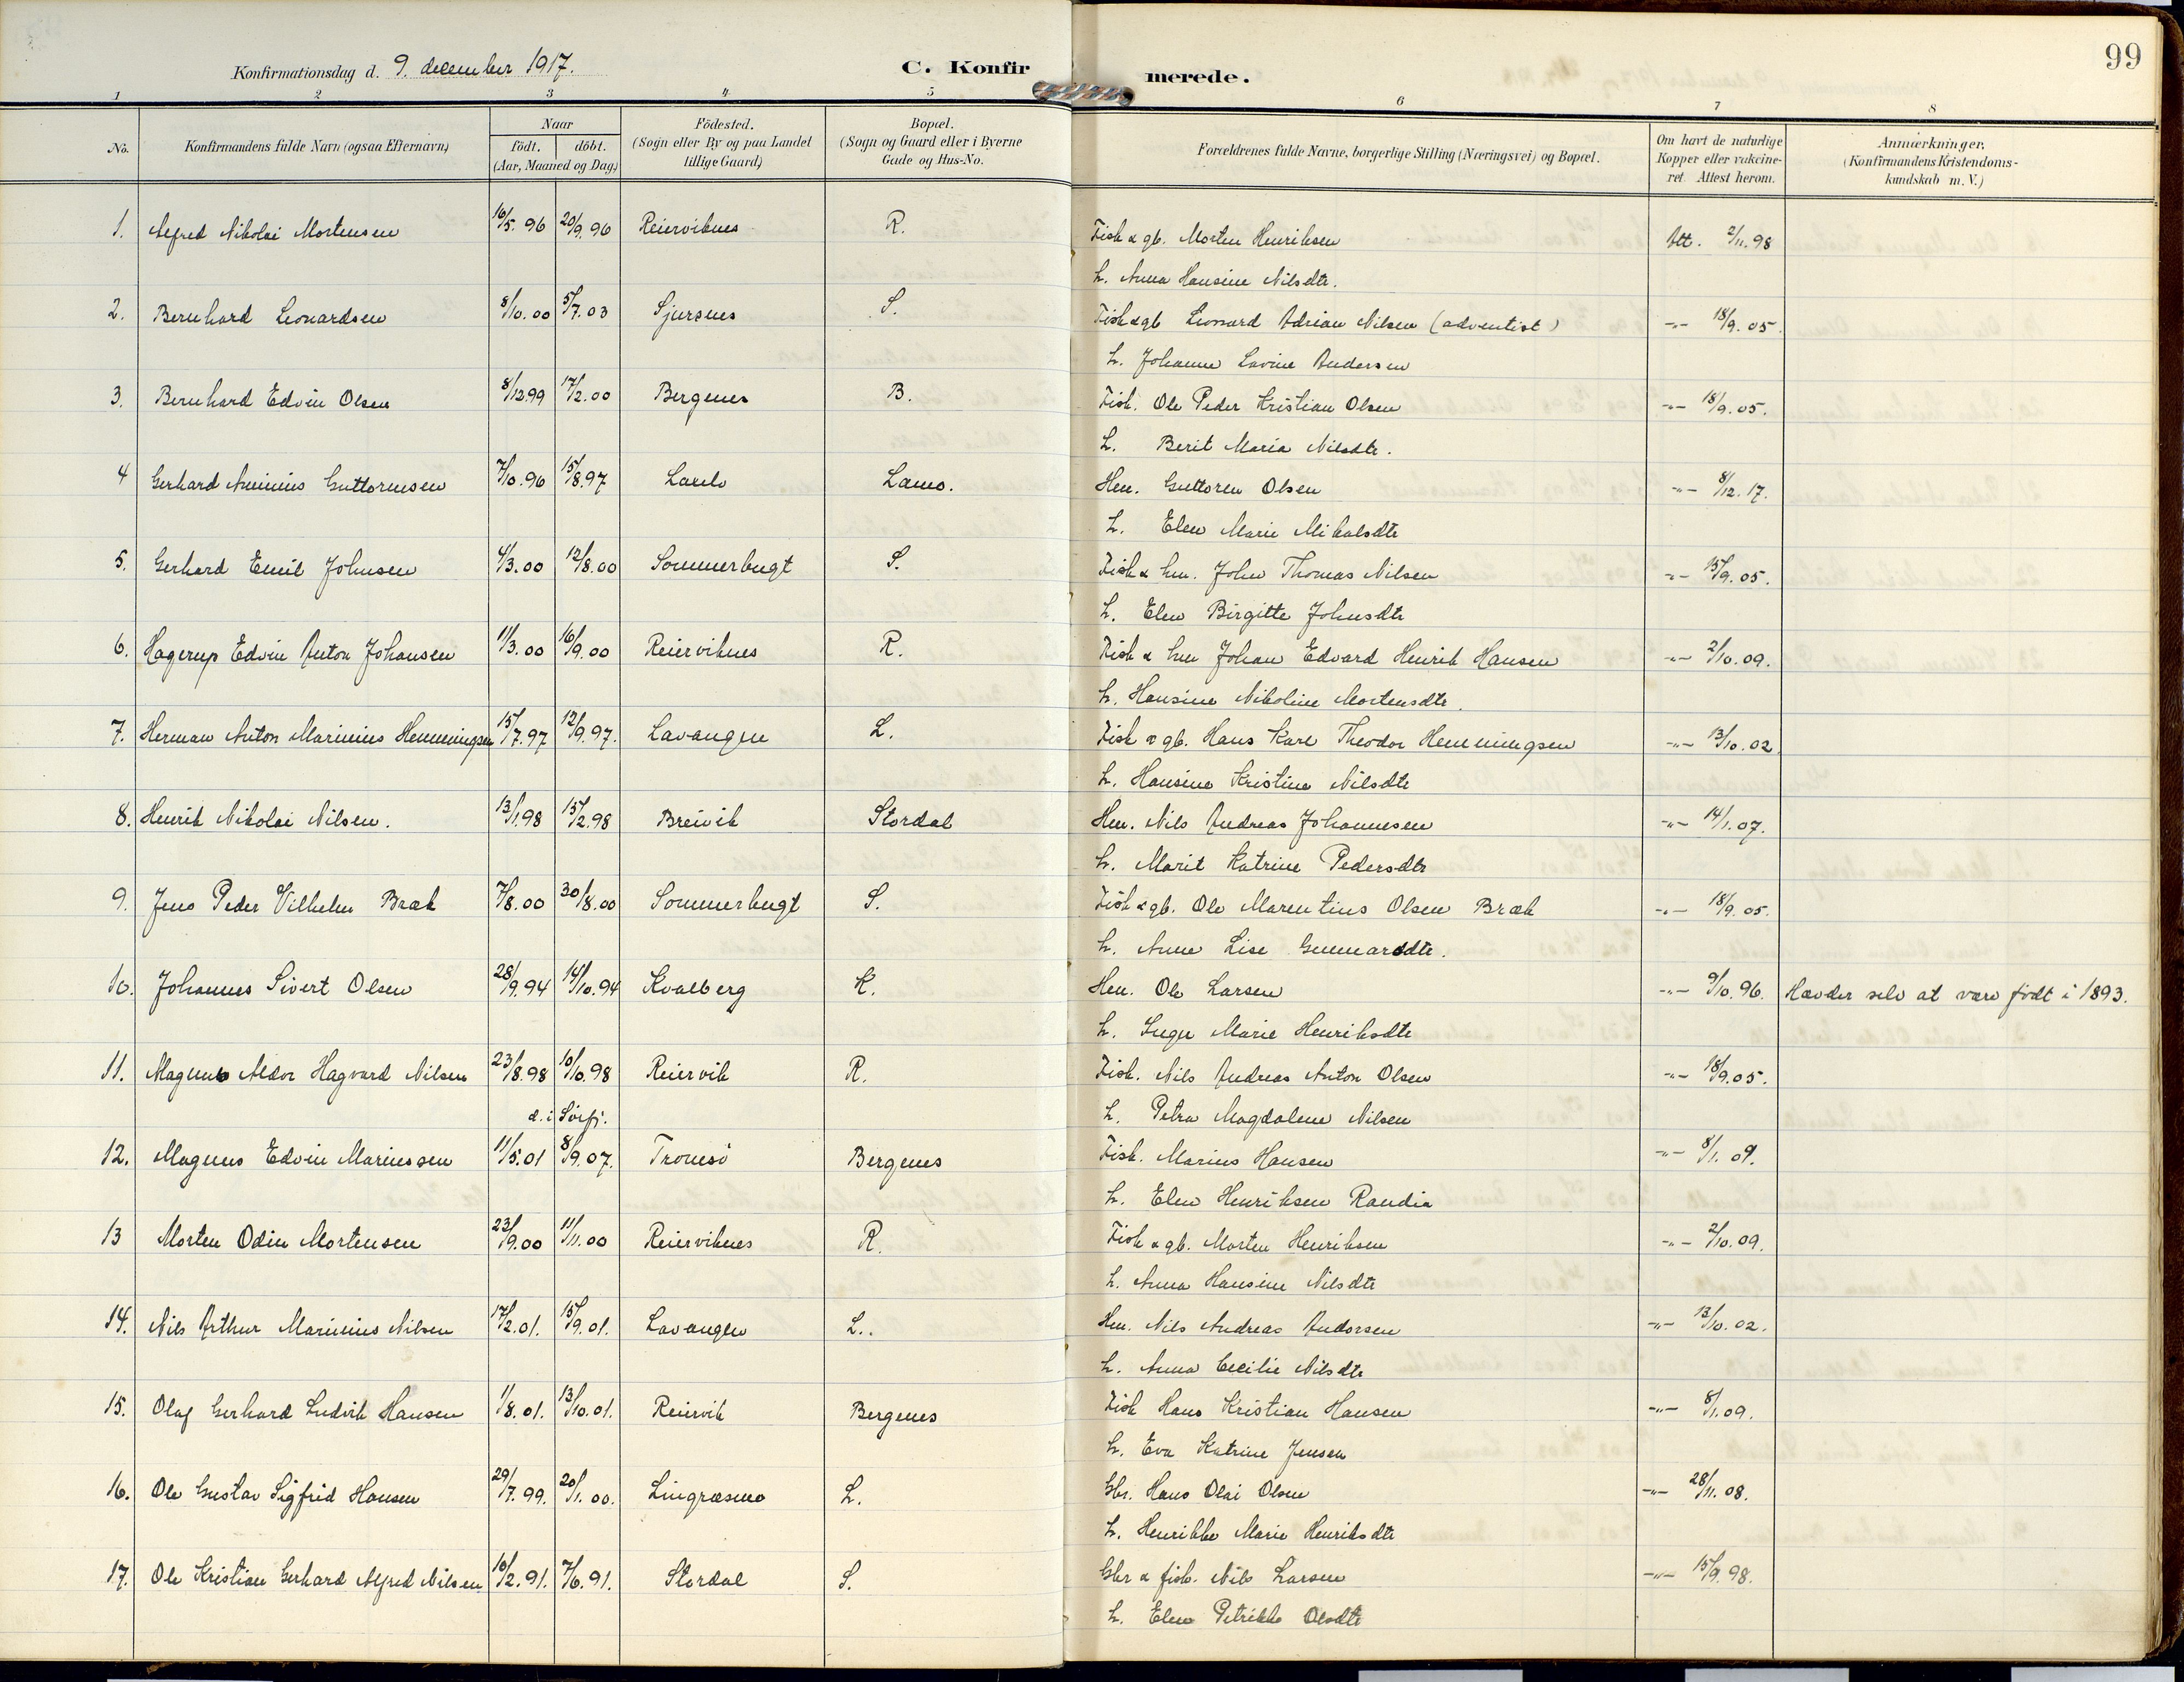 99
Konfirmationsdag d. 9. december 1917.
C. Konfirmerede.
1 2 3 4 5 6 7 8
No.
Konfirmandens fulde Navn (ogsaa Efternavn)
Naar
födt. döbt.
(Aar, Maaned og Dag)
Födested.
(Sogn eller By og paa Landet
tillige Gaard)
Bopæl.
(Sogn og Gaard eller i Byerne
Gade og Hus-No.
Forældrenes fulde Navne, borgerlige Stilling (Næringsvei) og Bopæl.
Om havt de naturlige
Kopper eller vakcine-
ret. Attest herom.
Anmærkninger.
(Konfirmandens Kristendoms-
kundskab m. V.)
1. Alfred Nikolai Mortensen 16/5. 96 20/9. 96 Reierviknes R. Fisk & gb. Morten Henriksen Att. 2/11. 98
h. Anna Hansine Nilsdtr.
2. Bernhard Leonardsen 8/10. 00 5/7. 03 Sjursnes S. Fisk & gb Leonard Adrian Nilsen (adventist) -"- 18/9. 05.
h. Johanne Lovine Andersen
3. Bernhard Edvin Olsen 8/12 99 17/2. 00 Bergenes B. Fisk. Ole Peder Kristian Olsen -"- 18/9. 05.
h. Berit Maria Nilsdtr.
4 Gerhard Arminius Guttormsen 7/10. 96 15/8. 97 Gm. Guttorm Olsen -"- 8/12. 17.
h. Elen Marie Mikalsdtr
5. Gerhard Emil Johnsen 4/3. 00 12/8. 00 Sommerbugt S. Fisk & hm. John Thomas Nilsen -"- 15/9. 05.
h. Elen Birgitte Johnsdtr
6. Hagerup Edvin Anton Johansen 11/3. 00 16/9. 00 Reierviknes R. Fisk & hm Johan Edvard Henrik Hansen -"- 2/10. 09.
h. Hansine Nikoline Mortensdtr.
7. Herman Anton Marinius Hemmingsen 15/7. 97 12/9. 97. Lavangen L. Fisk & gb. Hans Karl Theodor Hemmingsen -"- 13/10. 02
h. Hansine Kristine Nilsdtr
8. Henrik Nikolai Nilsen. 13/1. 98 15/2. 98 Breivik Stordal Hm. Nils Andreas Johannesen -"- 14/1. 07.
h. Marit Katrine Pedersdtr
9. Jens Peder Vilhelm Bræk 7/8. 00 30/8. 00 Sommerbugt S. Fisk & gb. Ole Marentius Olsen Bræk -"- 18/9. 05.
h. Anne Lise Gunnarsdtr.
10. Johannes Sivert Olsen 28/9. 94 14/10. 94 Kvalberg K. Hm. Ole Larsen -"- 9/10. 96. Hævder selv at være født i 1893.
h. Inger Marie Henriksdtr
11. Magnus Aldor Hagvard Nilsen 23/8. 98 10/10. 98 Reiervik R. Fisk. Nils Andreas Anton Olsen -"- 18/9. 05.
d. i Sørfj. h. Petra Magdalene Nilsen
12. Magnus Edvin Mariussen 11/5. 01 8/9. 07. Tromsö Bergenes Fisk. Marius Hansen -"- 8/1. 09.
h. Elen Henriksen Randia
13 Morten Odin Mortensen 23/9. 00 11/11. 00 Reierviknes R. Fisk & gb. Morten Henriksen -"- 2/10. 09.
h. Anna Hansine Nilsdtr
14. Nils Arthur Marinius Nilsen 17/2. 01. 15/9. 01. Lavangen L. Hm. Nils Andreas Andorsen -"- 13/10. 02.
h. Anna Cecilie Nilsdtr
15. Olaf Gerhard Ludvik Hansen 1/8. 01. 13/10. 01. Reiervik Bergenes Fisk Hans Kristian Hansen -"- 8/1. 09.
h. Eva Katrine Jensen
16. Ole Gustav Sigfrid Hansen 29/7. 99. 20/1. 00. L. Gbr. Hans Olai Olsen -"- 28/11. 08.
h. Henrikke Marie Henriksdtr
17. Ole Kristian Gerhard Alfred Nilsen 10/2. 91. 7/6. 91. Stordal S. Gbr & fisk. Nils Larsen -"- 15/9. 98.
h. Elen Petrikke Olsdtr